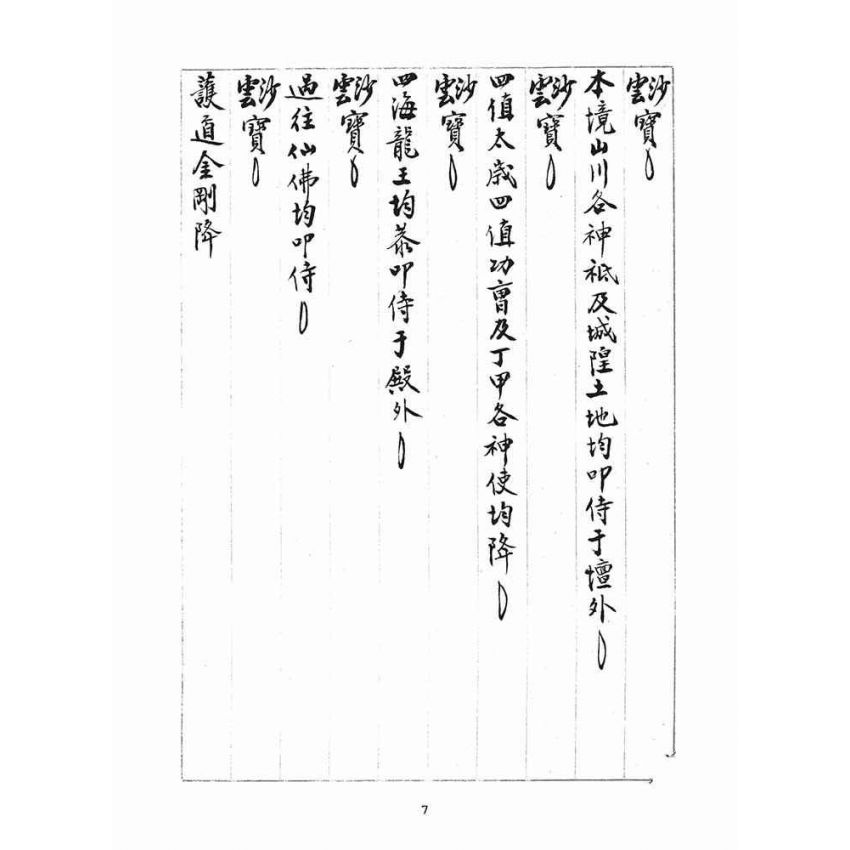 雲沙寶
本境山川各神祇及城隍土地均叩侍于壇外
雲沙寶
四值太歲四值功曹及丁甲各神使均降
雲沙寶
四海龍王均恭叩侍于殿外
雲沙寶
過往仙佛均叩侍
雲沙寶
護道金剛降
7